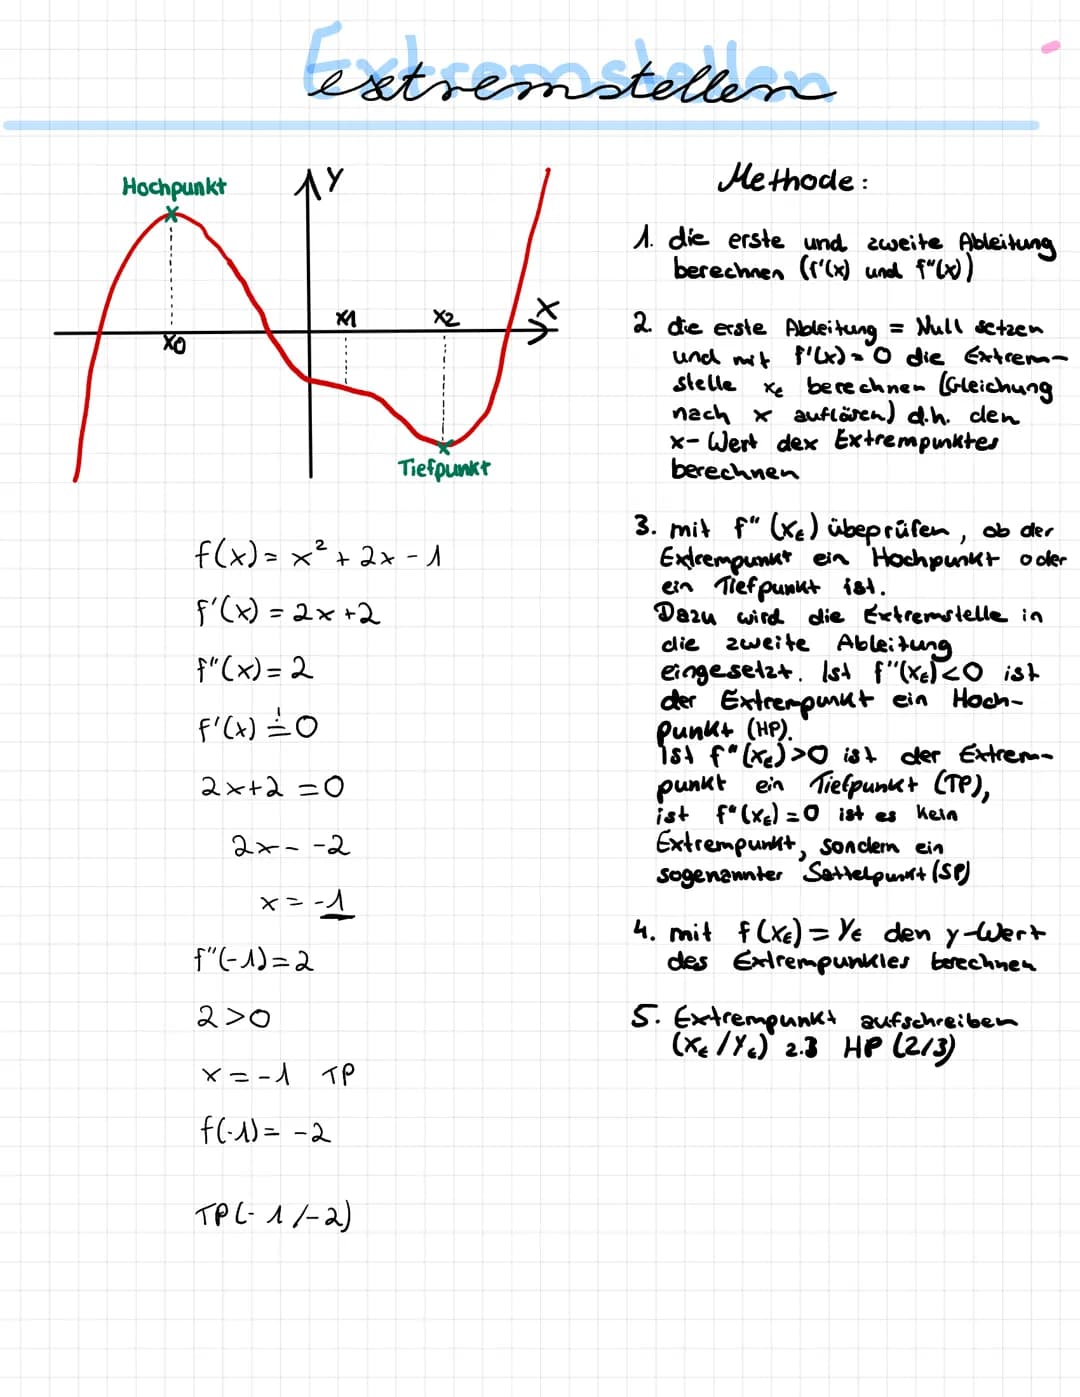 Extremstellen
extremstellen
Hochpunkt
Y
X
x0
x1
x2
Tiefpunkt
f(x) = x² + 2x - 1
f'(x) = 2x + 2
f"(x) = 2
f'(x) != 0
2x+2 = 0
2x = -2
x = -1
f"(-1) = 2
2 > 0
x = -1 TP
f(-1) = -2
TP(-1/-2)
Methode:
1. die erste und zweite Ableitung
berechnen (f'(x) und f"(x))
2. die erste Ableitung = Null setzen
und mit f'(x) = 0 die Extrem-
stelle xE berechnen (Gleichung
nach x auflösen) d.h. den
x-Wert dex Extrempunktes
berechnen
3. mit f" (xE) übeprüfen, ob der
Extrempunkt ein Hochpunkt oder
ein Tiefpunkt ist.
Dazu wird die Extremstelle in
die zweite Ableitung
eingesetzt. Ist f"(xE)<0 ist
der Extrempunkt ein Hoch-
punkt (HP).
Ist f"(xE)>0 ist der Extrem-
punkt ein Tiefpunkt (TP),
ist f"(xE) = 0 ist es kein
Extrempunkt, sondern ein
sogenannter Sattelpunkt (SP)
4. mit f(xE) = yE den y-Wert
des Extrempunktes berechnen
5. Extrempunkt aufschreiben
(xE/yE) z.B HP (2/3)